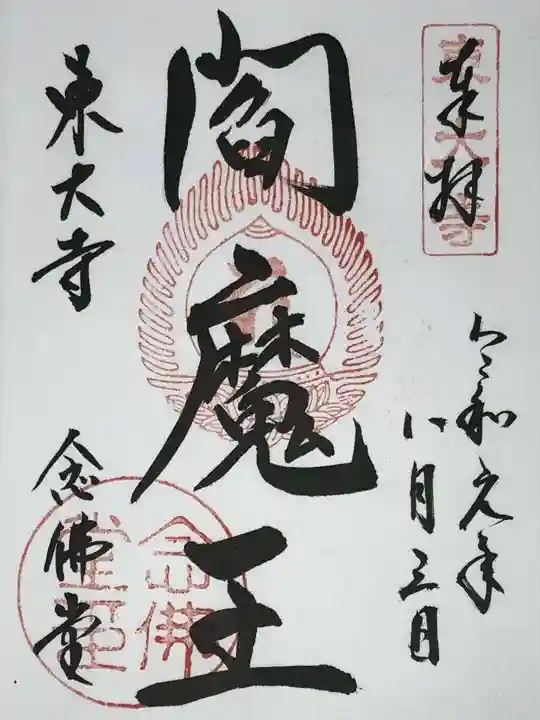 奉拝
令和元年
八月三日
閻魔王
東大寺
念佛堂
東大寺
念佛堂印